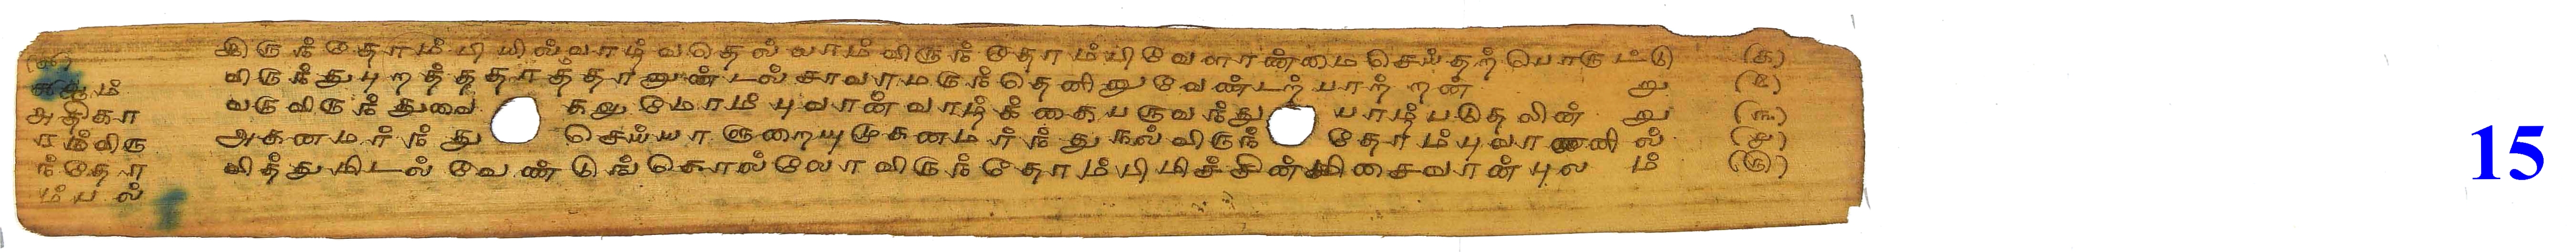 (௯)
௯ஆம்
அதிகா
ரம்விரு
ந்தோ
ம்பல்
இருந்தோம்பியில்வாழ்வதெல்லாம்விருந்தோம்பிவேளாண்மைசெய்தற்பொருட்டு (௧)
விருந்துபுறத்ததாத்தானுண்டல்சாவாமருந்தெனினுவேண்டற்பாற்றன் று (௨)
வருவிருந்துவை கலுமோம்புவான்வாழ்க்கைபருவந்து பாழ்படுதலின் று (௩)
அகனமர்ந்து செய்யாளுறையுமுகனமர்ந்துநல்விருந் தோம்புவானி ல் (௪)
வித்துமிடல்வேண்டுங்கொல்லோவிருந்தோம்பிமிச்சின்மிசைவான்புல ம் (௫)
15